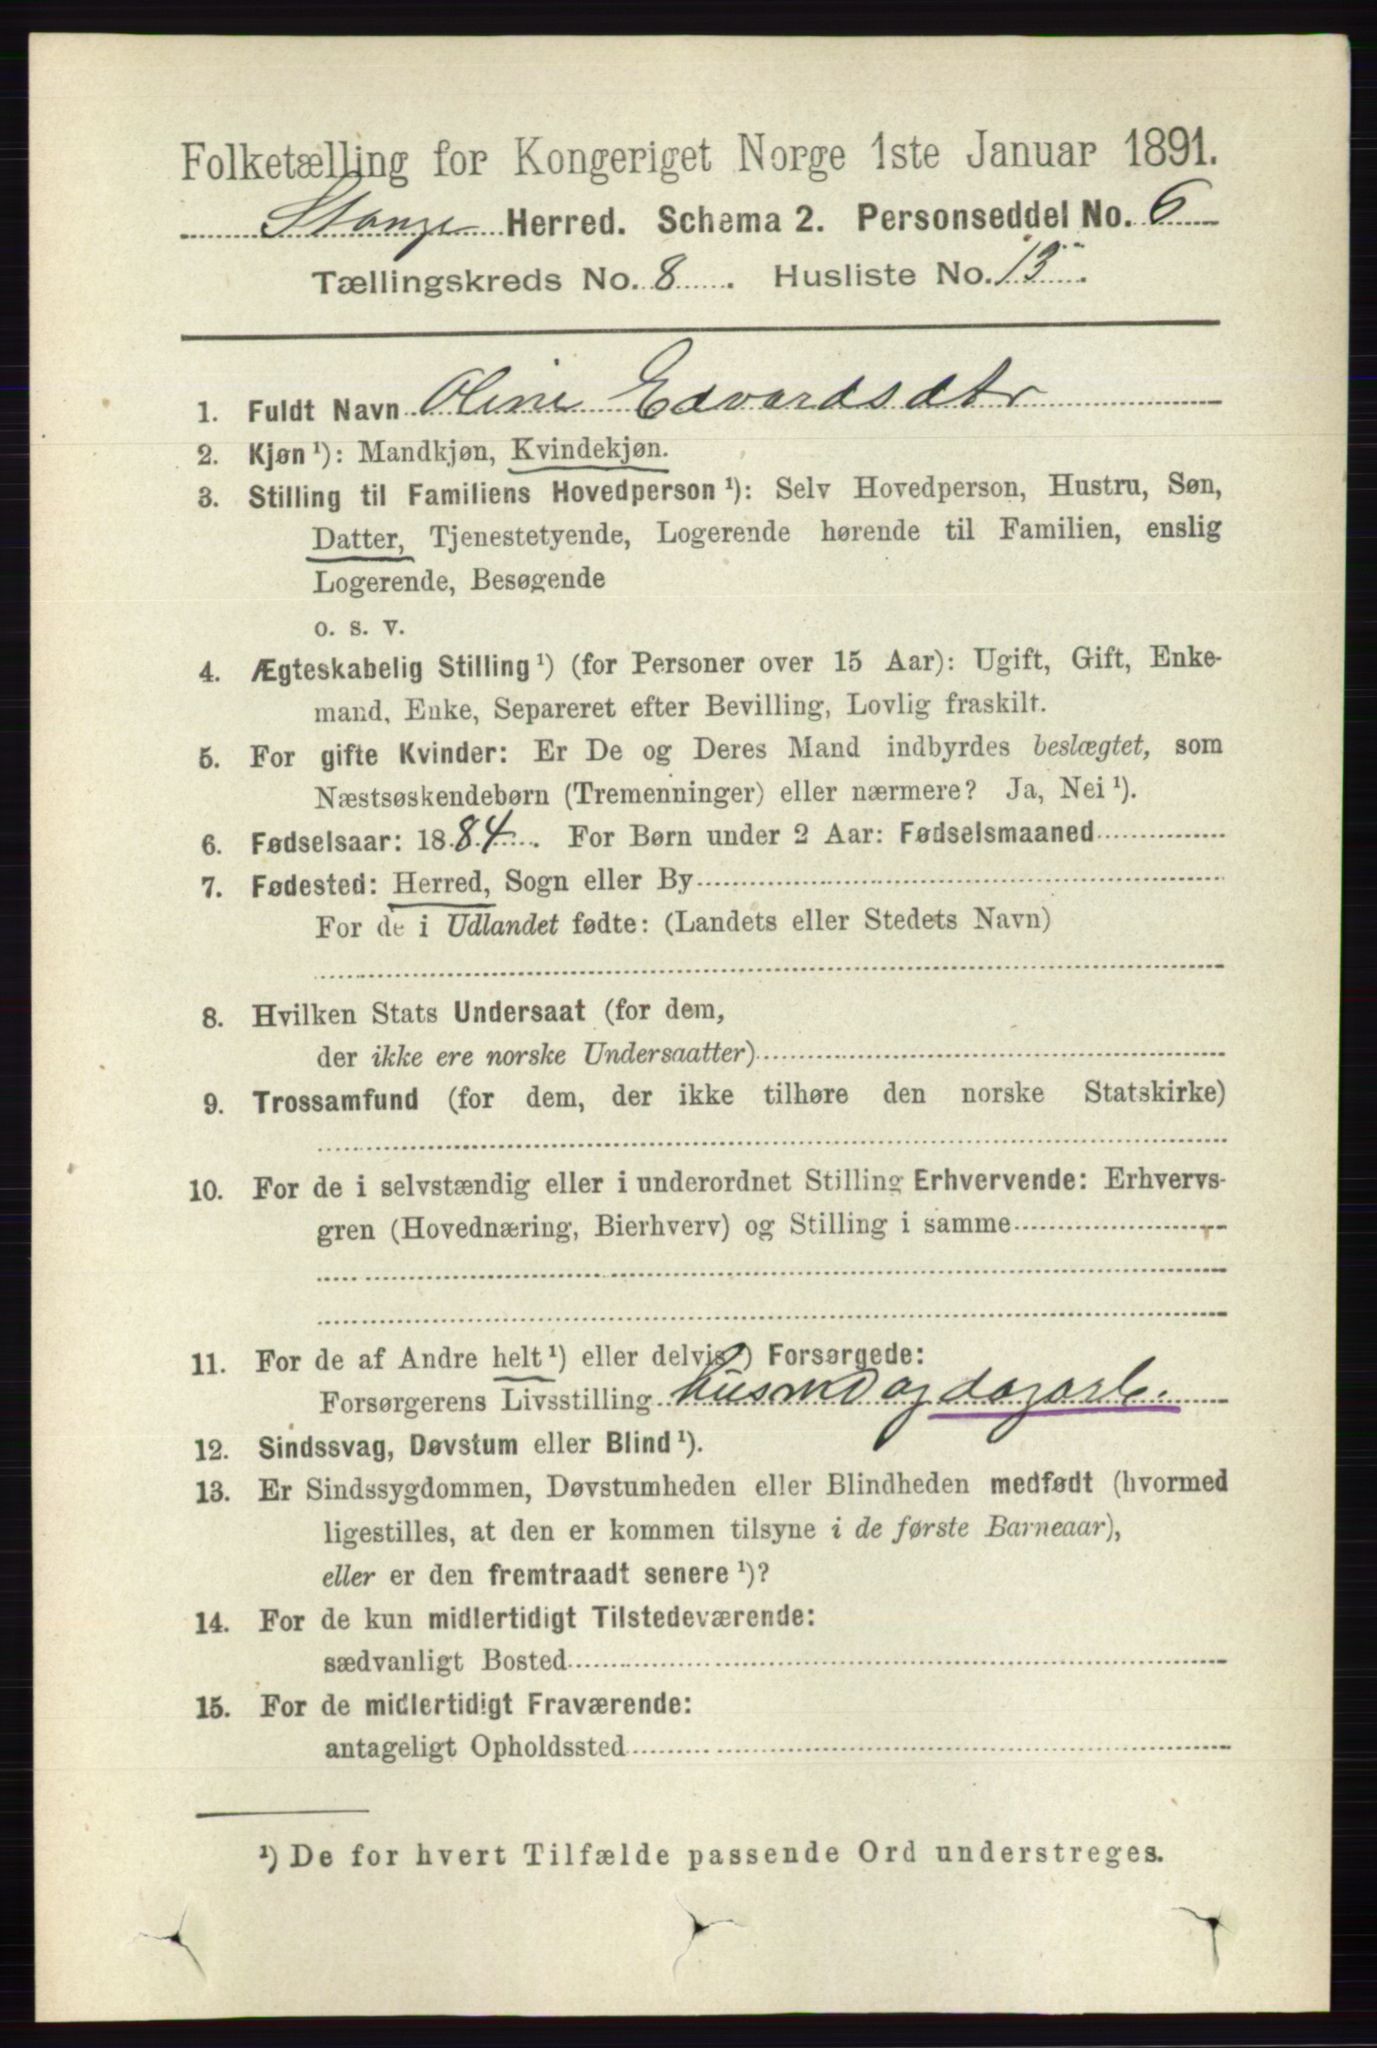 Folketælling for Kongeriget Norge 1ste Januar 1891.
Stange Herred. Schema 2. Personseddel No. 6
Tællingskreds No. 8. Husliste No. 13.
1. Fuldt Navn Oline Edvardsdtr
2. Kjøn¹): Mandkjøn, Kvindekjøn.
3. Stilling til Familiens Hovedperson¹): Selv Hovedperson, Hustru, Søn,
Datter, Tjenestetyende, Logerende hørende til Familien, enslig
Logerende, Besøgende
o. s. v.
4. Ægteskabelig Stilling¹) (for Personer over 15 Aar): Ugift, Gift, Enke-
mand, Enke, Separeret efter Bevilling, Lovlig fraskilt.
5. For gifte Kvinder: Er De og Deres Mand indbyrdes beslægtet, som
Næstsøskendebørn (Tremenninger) eller nærmere? Ja, Nei¹).
6. Fødselsaar: 1884. For Børn under 2 Aar: Fødselsmaaned
7. Fødested: Herred, Sogn eller By
For de i Udlandet fødte: (Landets eller Stedets Navn)
8. Hvilken Stats Undersaat (for dem,
der ikke ere norske Undersaatter)
9. Trossamfund (for dem, der ikke tilhøre den norske Statskirke)
10. For de i selvstændig eller i underordnet Stilling Erhvervende: Erhvervs-
gren (Hovednæring, Bierhverv) og Stilling i samme
11. For de af Andre helt¹) eller delvis¹) Forsørgede:
Forsørgerens Livsstilling husmd og dagarb.
12. Sindssvag, Døvstum eller Blind¹).
13. Er Sindssygdommen, Døvstumheden eller Blindheden medfødt (hvormed
ligestilles, at den er kommen tilsyne i de første Barneaar),
eller er den fremtraadt senere¹)?
14. For de kun midlertidigt Tilstedeværende:
sædvanligt Bosted
15. For de midlertidigt Fraværende:
antageligt Opholdssted
¹) De for hvert Tilfælde passende Ord understreges.